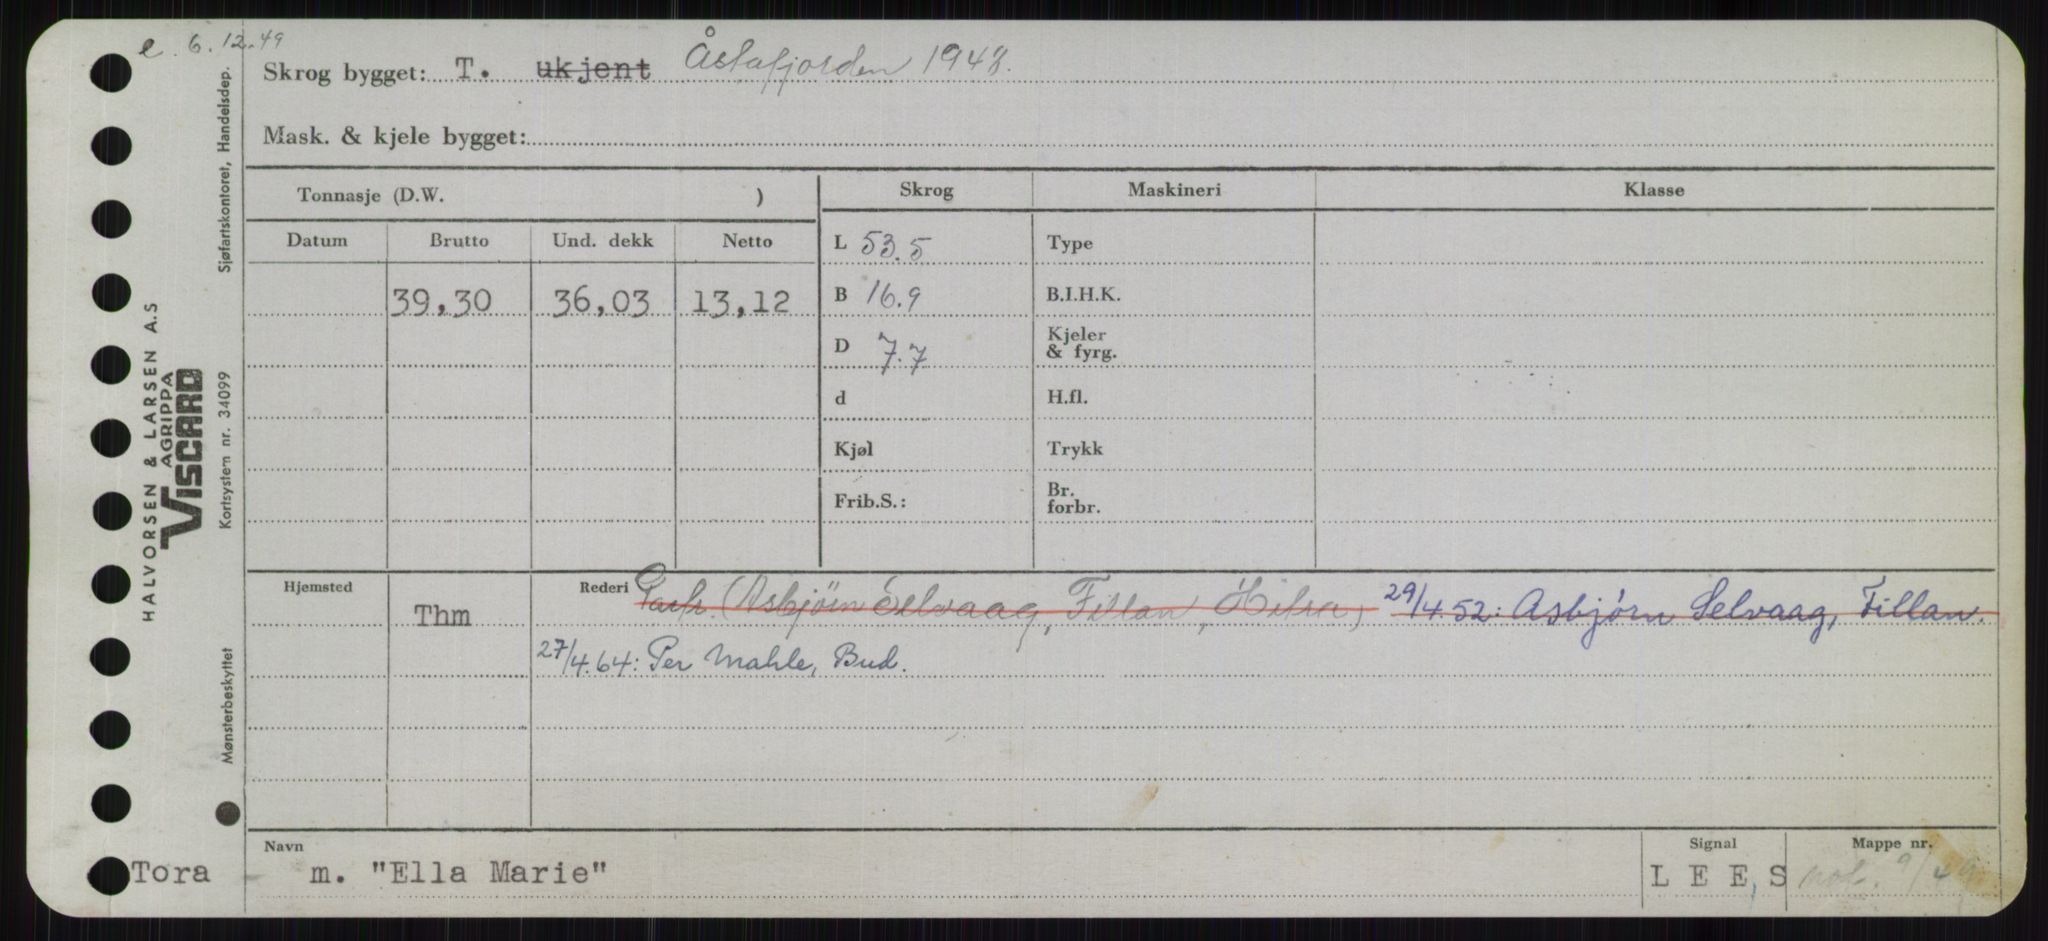 e. 6.12.49
Skrog bygget: T. ukjent Åstafjorden 1948.
Mask. & kjele bygget:
Tonnasje (D.W. )
Skrog Maskineri Klasse
Datum Brutto Und. dekk Netto
L 53.5 Type
39,30 36,03 13,12
B 16.9 B.I.H.K.
D 7.7 Kjeler & fyrg.
d H.fl.
Kjøl Trykk
Frib.S.: Br. forbr.
Hjemsted Thm
Rederi Partr. (Asbjørn Selvaag, Fillan, Hitra) 29/4.52: Asbjørn Selvaag, Fillan.
27/4.64: Per Mahle, Bud.
Navn Signal Mappe nr.
Tora m. "Ella Marie" L E E S not. 9/49
HALVORSEN & LARSEN A.S
AGRIPPA
VISCARD
Sjøfartskontoret, Handelsdep.
Kortsystem nr. 34099
Mønsterbeskyttet